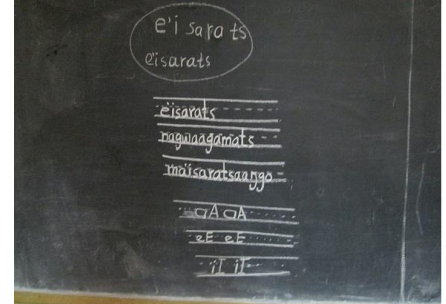 e'i sarats
ëisarats
ëisarats
nagwaagamats
maïsaratsaango
aA aA
eE eE
iI iI